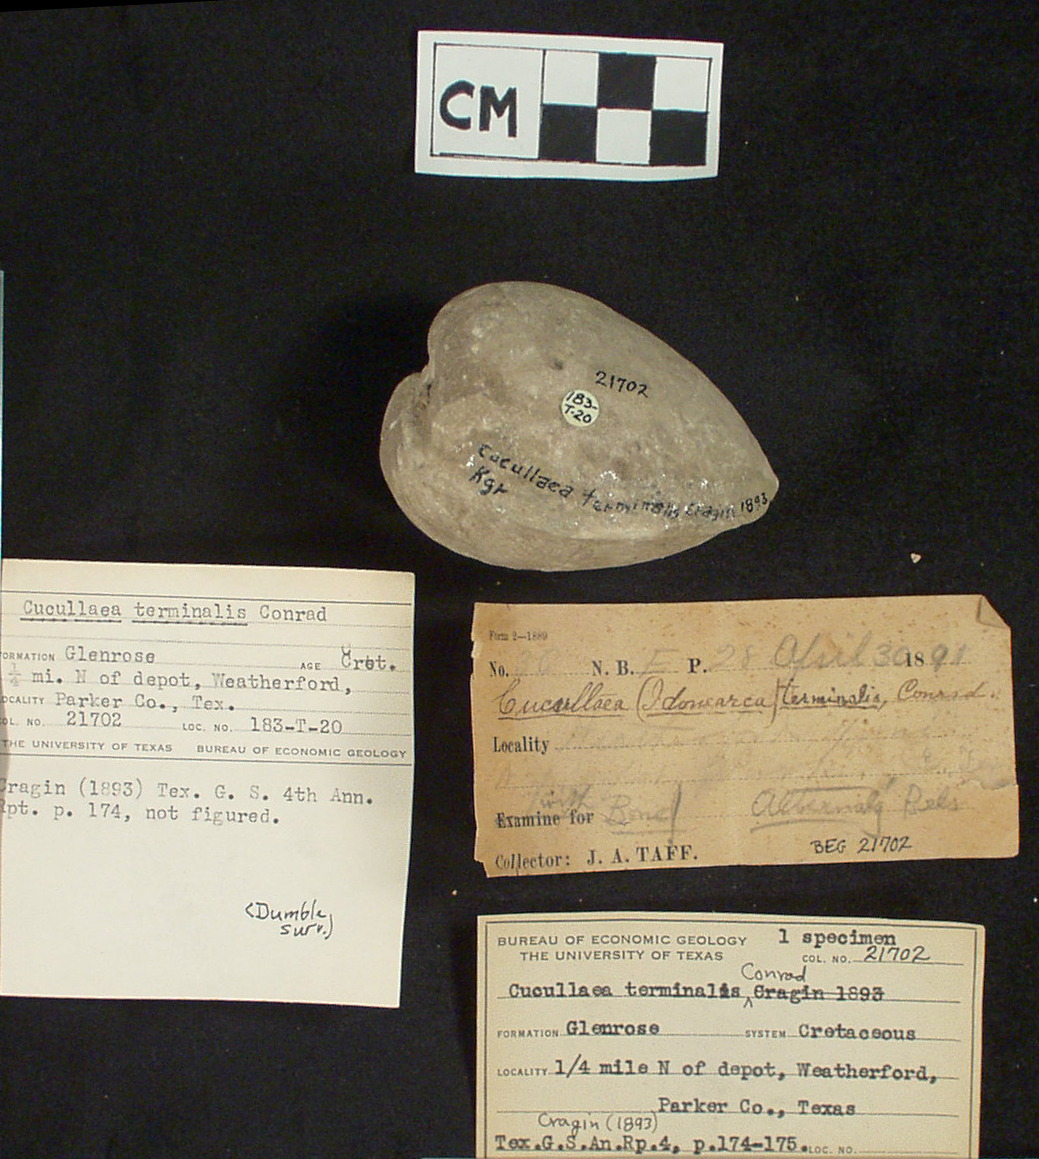 CM
21702
183-
T-20
Cucullaea terminalis Cragin 1893
Kgr
Cucullaea terminalis Conrad
FORMATION Glenrose AGE Cret.
1/4 mi. N of depot, Weatherford,
LOCALITY Parker Co., Tex.
COL. NO. 21702 LOC. NO. 183-T-20
THE UNIVERSITY OF TEXAS BUREAU OF ECONOMIC GEOLOGY
Cragin (1893) Tex. G. S. 4th Ann.
Rpt. p. 174, not figured.
(Dumble
Surv.)
Form 2—1889
No. N. B. E P. 28 April 30 1891
Cucullaea (Idonearca) terminalis, Conrad.
Locality
Examine for Alternating Beds
Collector: J. A. TAFF.
BEG 21702
BUREAU OF ECONOMIC GEOLOGY 1 specimen
THE UNIVERSITY OF TEXAS COL. NO. 21702
Conrad
Cucullaea terminalis ^ Cragin 1893
FORMATION Glenrose SYSTEM Cretaceous
LOCALITY 1/4 mile N of depot, Weatherford,
Parker Co., Texas
Cragin (1893)
Tex.G.S.An.Rp.4, p.174-175. LOC. NO.